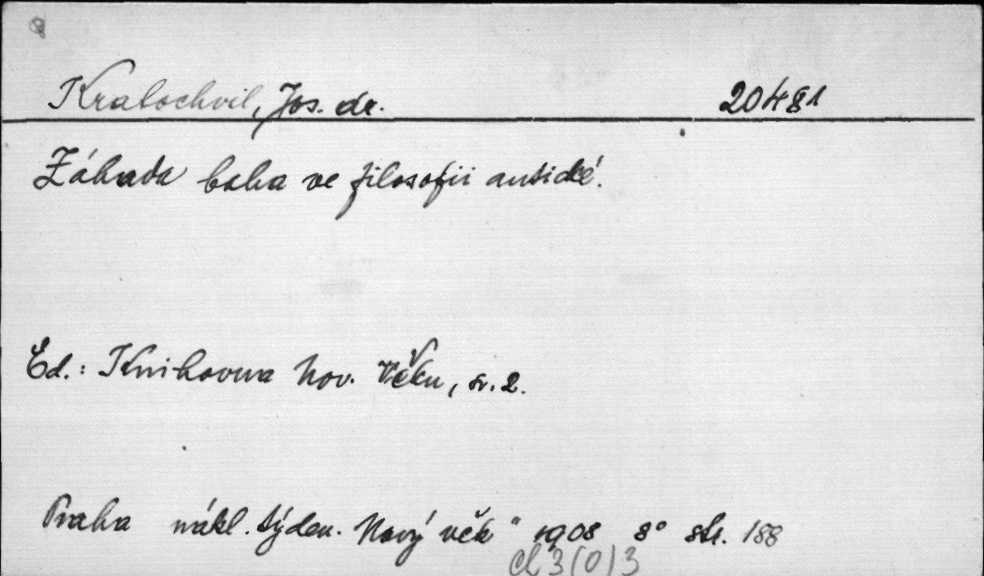 Kralochvil, Jos. dr. 20481
Záhada boha ve filosofii antické.
Ed.: Knihovna Nov. Věku, sv. 2.
Praha nákl. týden. Nový věk" 1908 8° str. 188
Cl 3(0)3